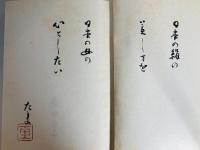 日本の絹の
美しさを
日本の女の
心としたい
たま